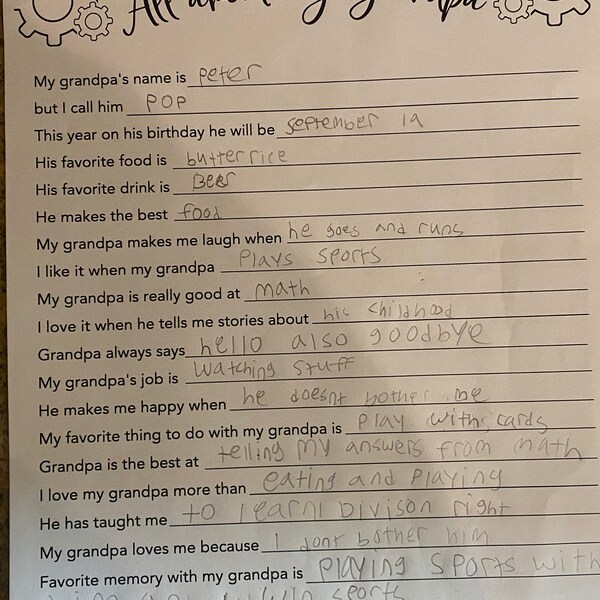 All about my grandpa
My grandpa's name is Peter
but I call him POP
This year on his birthday he will be September 19
His favorite food is butterrice
His favorite drink is Beer
He makes the best food
My grandpa makes me laugh when he goes and runs
I like it when my grandpa Plays sports
My grandpa is really good at math
I love it when he tells me stories about his childhood
Grandpa always says hello also goodbye
My grandpa's job is Watching stuff
He makes me happy when he doesnt bother me
My favorite thing to do with my grandpa is Play with cards
Grandpa is the best at telling my answers from math
I love my grandpa more than eating and Playing
He has taught me to learn Divison right
My grandpa loves me because I dont bother him
Favorite memory with my grandpa is Playing Sports with
sports